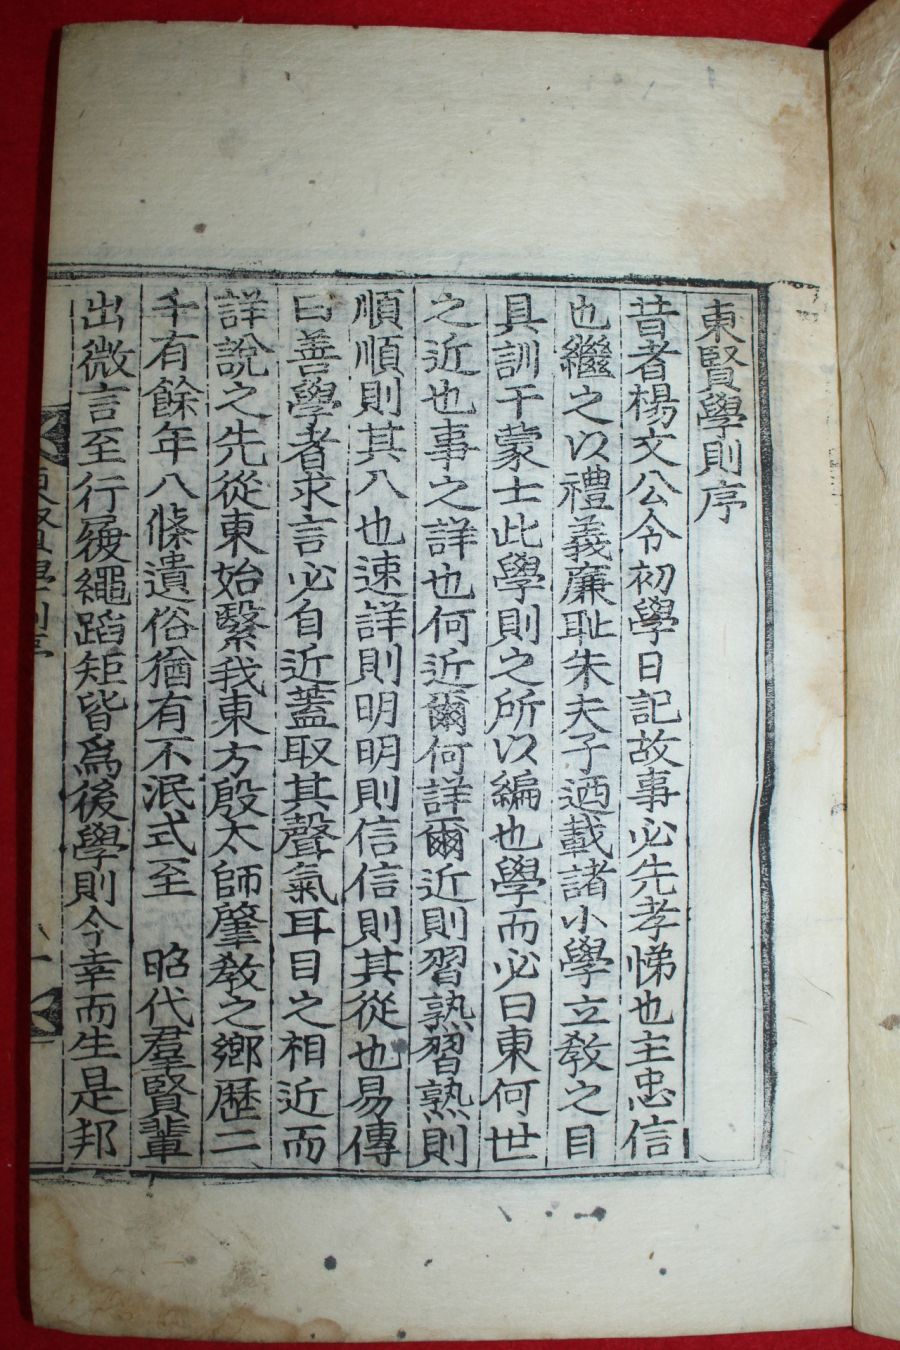 東賢學則序
昔者楊文公令初學日記故事必先孝悌也主忠信
也繼之以禮義廉耻朱夫子迺載諸小學立敎之目
具訓于蒙士此學則之所以編也學而必曰東何世
之近也事之詳也何近爾何詳爾近則習熟習熟則
順順則其入也速詳則明明則信信則其從也易傳
曰善學者求言必自近蓋取其聲氣耳目之相近而
詳說之先從東始繄我東方殷太師肇敎之鄕歷二
千有餘年八條遺俗猶有不泯式至 昭代羣賢輩
出微言至行履繩蹈矩皆爲後學則今幸而生是邦
東賢學則序
一